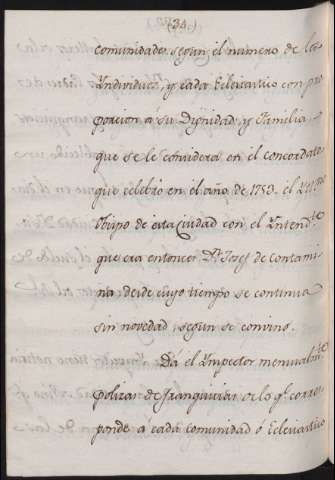 (34.)
comunidades segun el numero de los
Individuos, y cada Eclesiastico con pro
porcion a su Dignidad, y Familia
que se le considera en el concordato
que celebro en el año de 1753. el Yll.mo
Obispo de esta Ciudad con el Yntend.te
que era entonces D.n Josef de Contami
na desde cuyo tiempo se continua
sin novedad segun se convino.
Da el Ynspector mensualm.te
polizas de franquicias de lo q.e corres
ponde a cada comunidad ó Eclesiastico